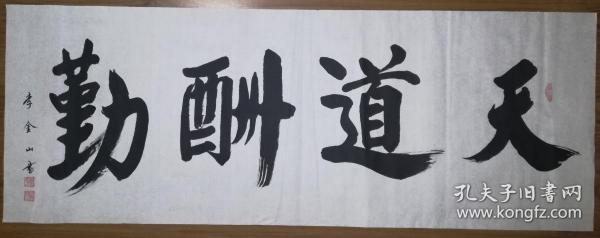 天道酬勤
李金山书
孔夫子旧书网
www.kongfz.com